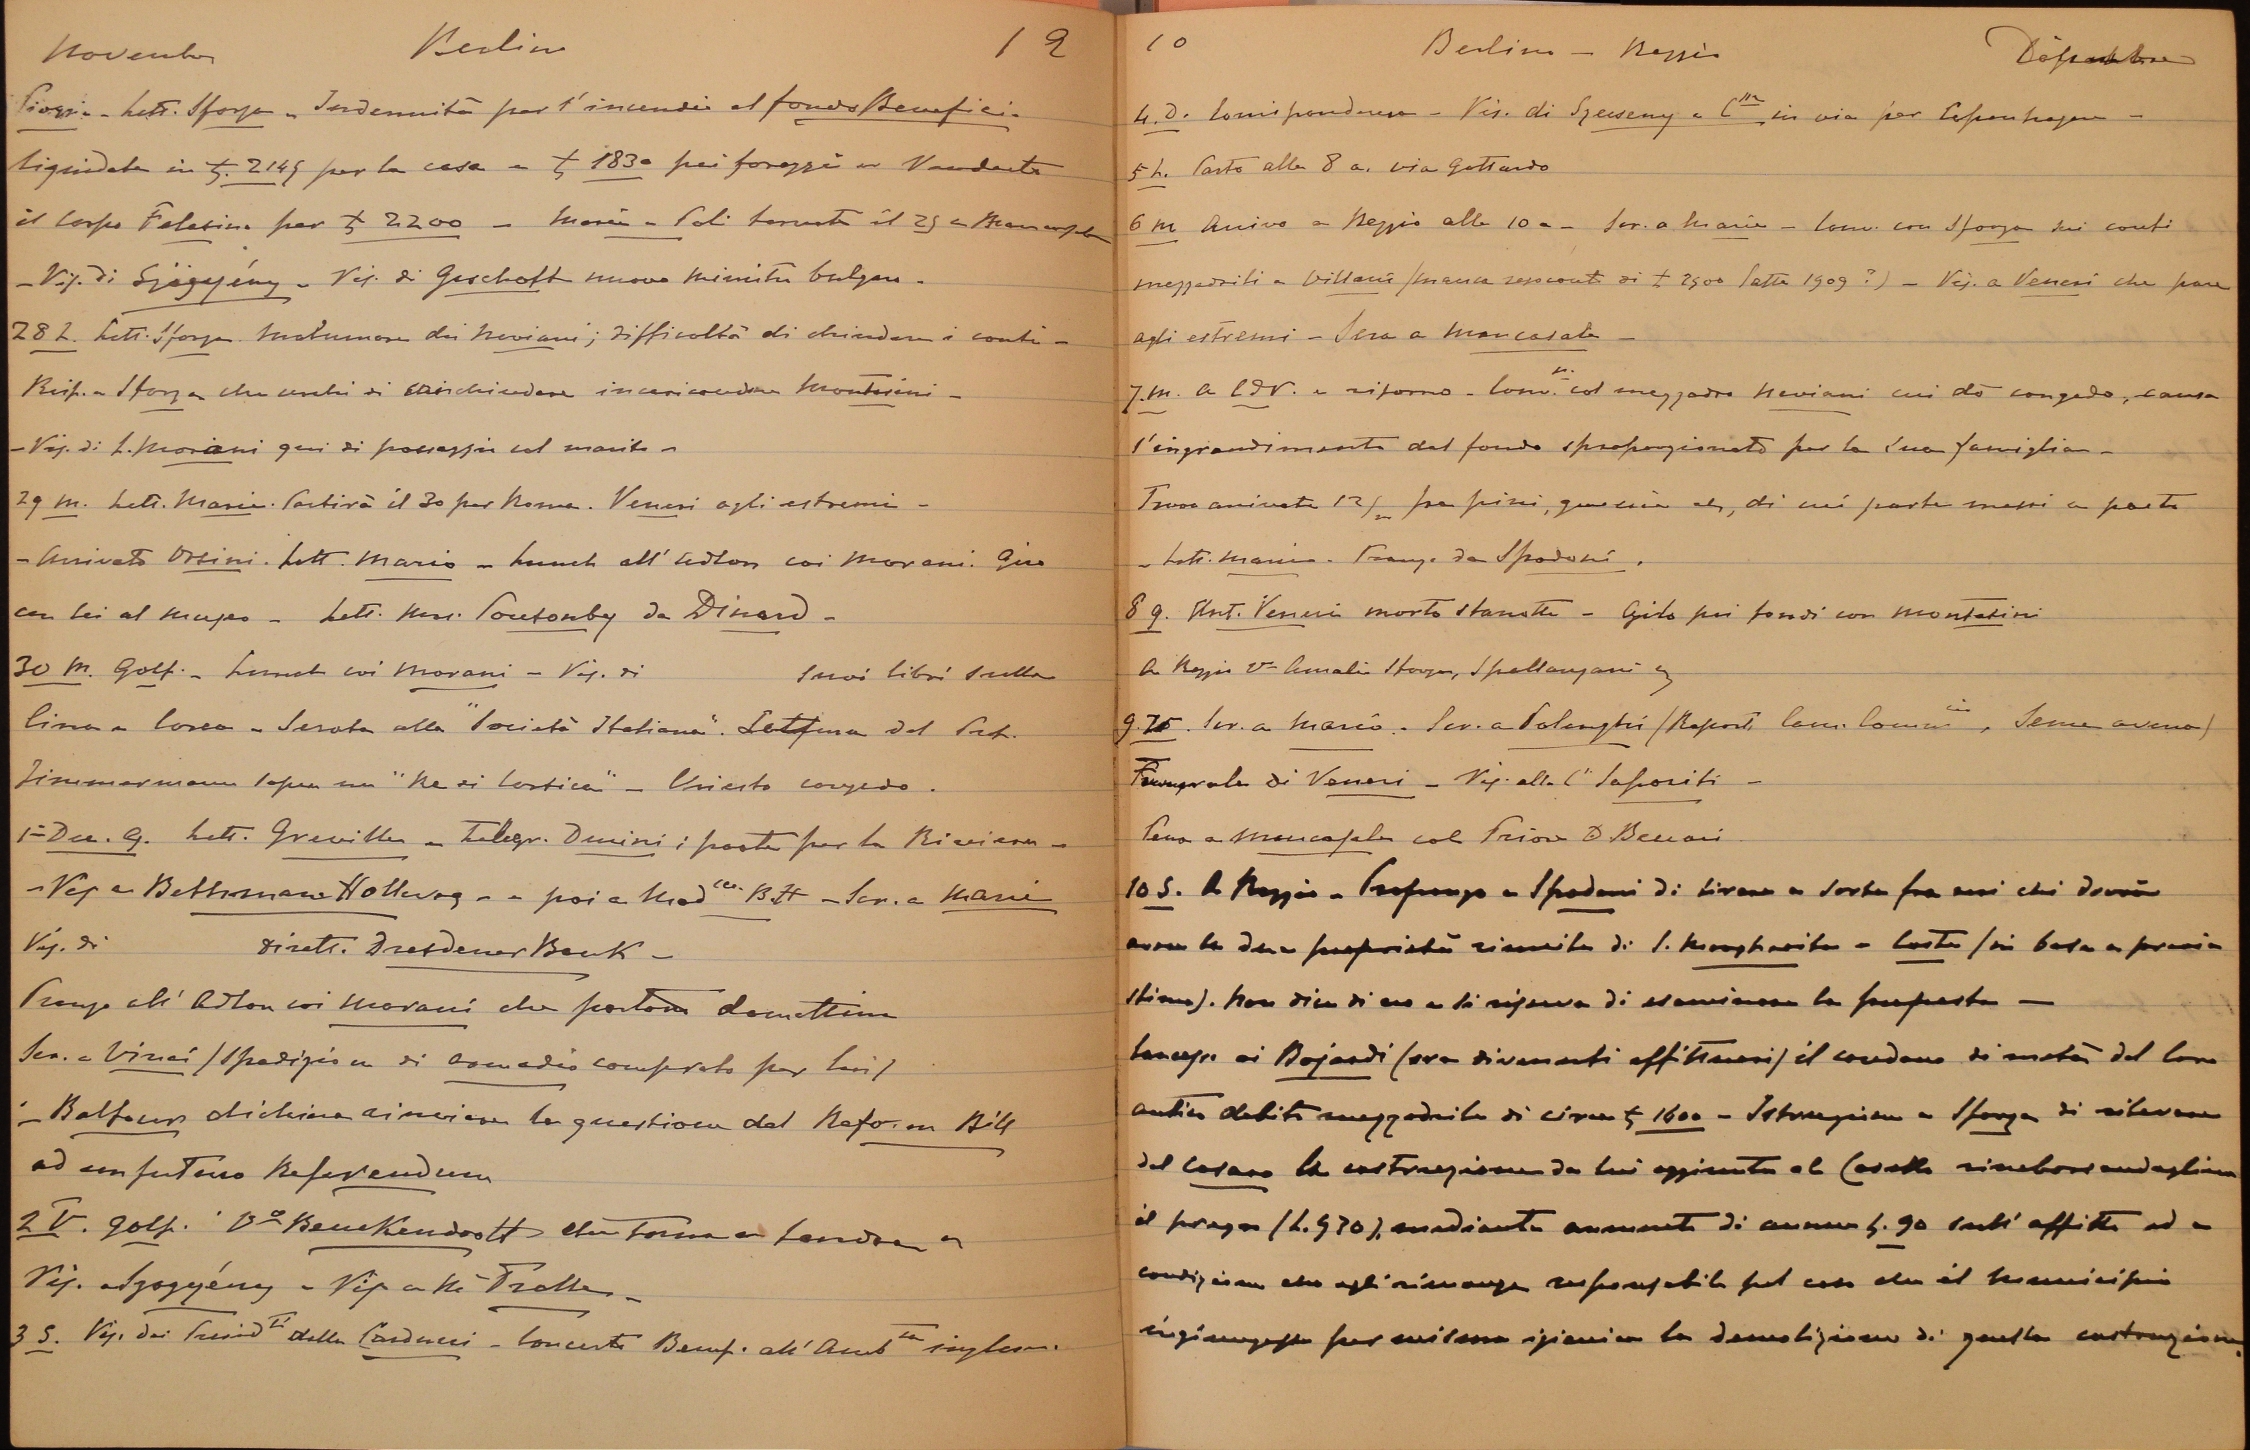 Novembre Berlino 19
Pioggia - Lett. Sforza - Indennità per l'incendio al fondo Benefici.
liquidata in £. 2145 per la casa e £ 1830 pei foraggi - Venduto
il corpo Felesino per £ 2200 - Maria - Poli tornata il 25 a Mancasale
- Vis. di Szögyény - Vis. di Geschoff nuovo ministro bulgaro -
28 L. Lett. Sforza. Malumore dei Neviani; difficoltà di chiudere i conti -
Risp. a Sforza che cerchi di chiudere incaricandone Montesini -
- Vis. di L. Morani qui di passaggio col marito -
29 M. Lett. Maria. Partirà il 30 per Roma. Veneri agli estremi -
- Arrivato Orsini. Lett. Mario - Lunch all'Adlon coi Morani. Giro
con lei al museo - Lett. Mrs. Ponsonby da Dinard -
30 M. Golf. - Lunch coi Morani - Vis. di suoi libri sulla
Cina e Corea - Serata alla "Società Italiana". Lettura del Prof.
Zimmermann sopra un "Re di Corsica" - Chiesto congedo.
1° Dec. G. Lett. Greville - Telegr. Denini: parte per la Riviera -
- Vis. a Bethmann Hollweg - e poi a Mad. B.H. - Scr. a Maria
Vis. di dirett. Dresdener Bank -
Pranzo all'Adlon coi Morani che partono domattina
Scr. a Vinci (Spedizione di armadio comprato per lui)
- Balfour dichiara rinviare la questione del Reform Bill
ad un futuro Referendum
2 V. Golf. Benckendorff che torna a Londra -
Vis. a Szogyény - Vis. a Trolle -
3 S. Vis. dei Presid.ti della Carducci - Concerto Benef. all'Amb.ta inglese.
10 Berlino - Reggio Dicembre
4. D. Corrispondenza - Vis. di in via per Copenhagen -
5 L. Parto alle 8 a. via Gottardo
6 M Arrivo a Reggio alle 10 a - Scr. a Maria - Conv. con Sforza sui conti
mezzadrili e Villani (manca resoconto di £ 2500 latte 1909?) - Vis. a Veneri che pare
agli estremi - Sera a Mancasale -
7. M. A CdV. e ritorno - Conv. col mezzadro Neviani cui dò congedo, causa
l'ingrandimento del fondo sproporzionato per la sua famiglia -
Trovo arrivate fra pini, quercie etc, di cui parte messi a posto
- Lett. Maria - Pranzo da Spadoni.
8 G. Ant. Veneri morto stanotte - Giro pei fondi con Montesini
A Reggio Amalia Sforza, Spallanzani
9. V. Scr. a Mario - Scr. a Polenghi (Rapporti Cam. Comm.cio, Seme avena)
Funerale di Veneri - Vis. alla C. Saporiti -
Cena a Mancasale col Priore D. Beccari
10 S. A Reggio - Propongo a Spadoni di tirare a sorte fra noi chi dovrà
avere le due proprietà riunite di S. Margherita - Costa (in base a previa
stima). Non dice di no e si riserva di esaminare la proposta -
Concesso ai Bojardi (ora divenuti affittuari) il condono di metà del loro
antico debito mezzadrile di circa £ 1600 - Istruzione a Sforza di rilevare
dal Casaro la costruzione da lui aggiunta al Casello rimborsandogliene
il prezzo (L. 970), mediante aumento di annue £. 90 sull'affitto ed a
condizione che egli rimanga responsabile pel caso che il Municipio
ingiungesse per misura igienica la demolizione di quella costruzione.